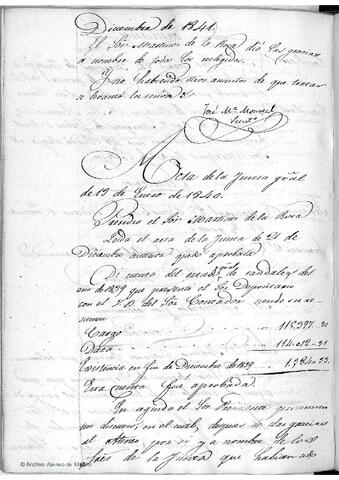 Diciembre de 1841.
El Sor. Martinez de la Rosa dió las gracias
á nombre de todos los reelegidos.
Y no habiendo otros asuntos de que tratar
se levantó la sesion.
José Ma.
Acta de la Junta gral
de 13 de Enero de 1840.
Presidió el Sor. Martinez de la Rosa
Leida el acta de la Junta de 21 de
Diciembre anterior quedó aprobada.
Dí cuenta del gral de caudales del
año de 1839 que presentó el Sor. Depositario
con el V.B. del Sor. Contador siendo su re-
sumen
Cargo 115.397..30
Data 114.012..31
Existencia en fin de Diciembre de 1839 1.384..33.
Esta cuenta fue aprobada.
En seguida el Sor. Presidente pronunció
un discurso, en el cual, despues de dar gracias
al Ateneo, por sí y á nombre de los
de la Junta que habian
© Archivo Ateneo de Madrid